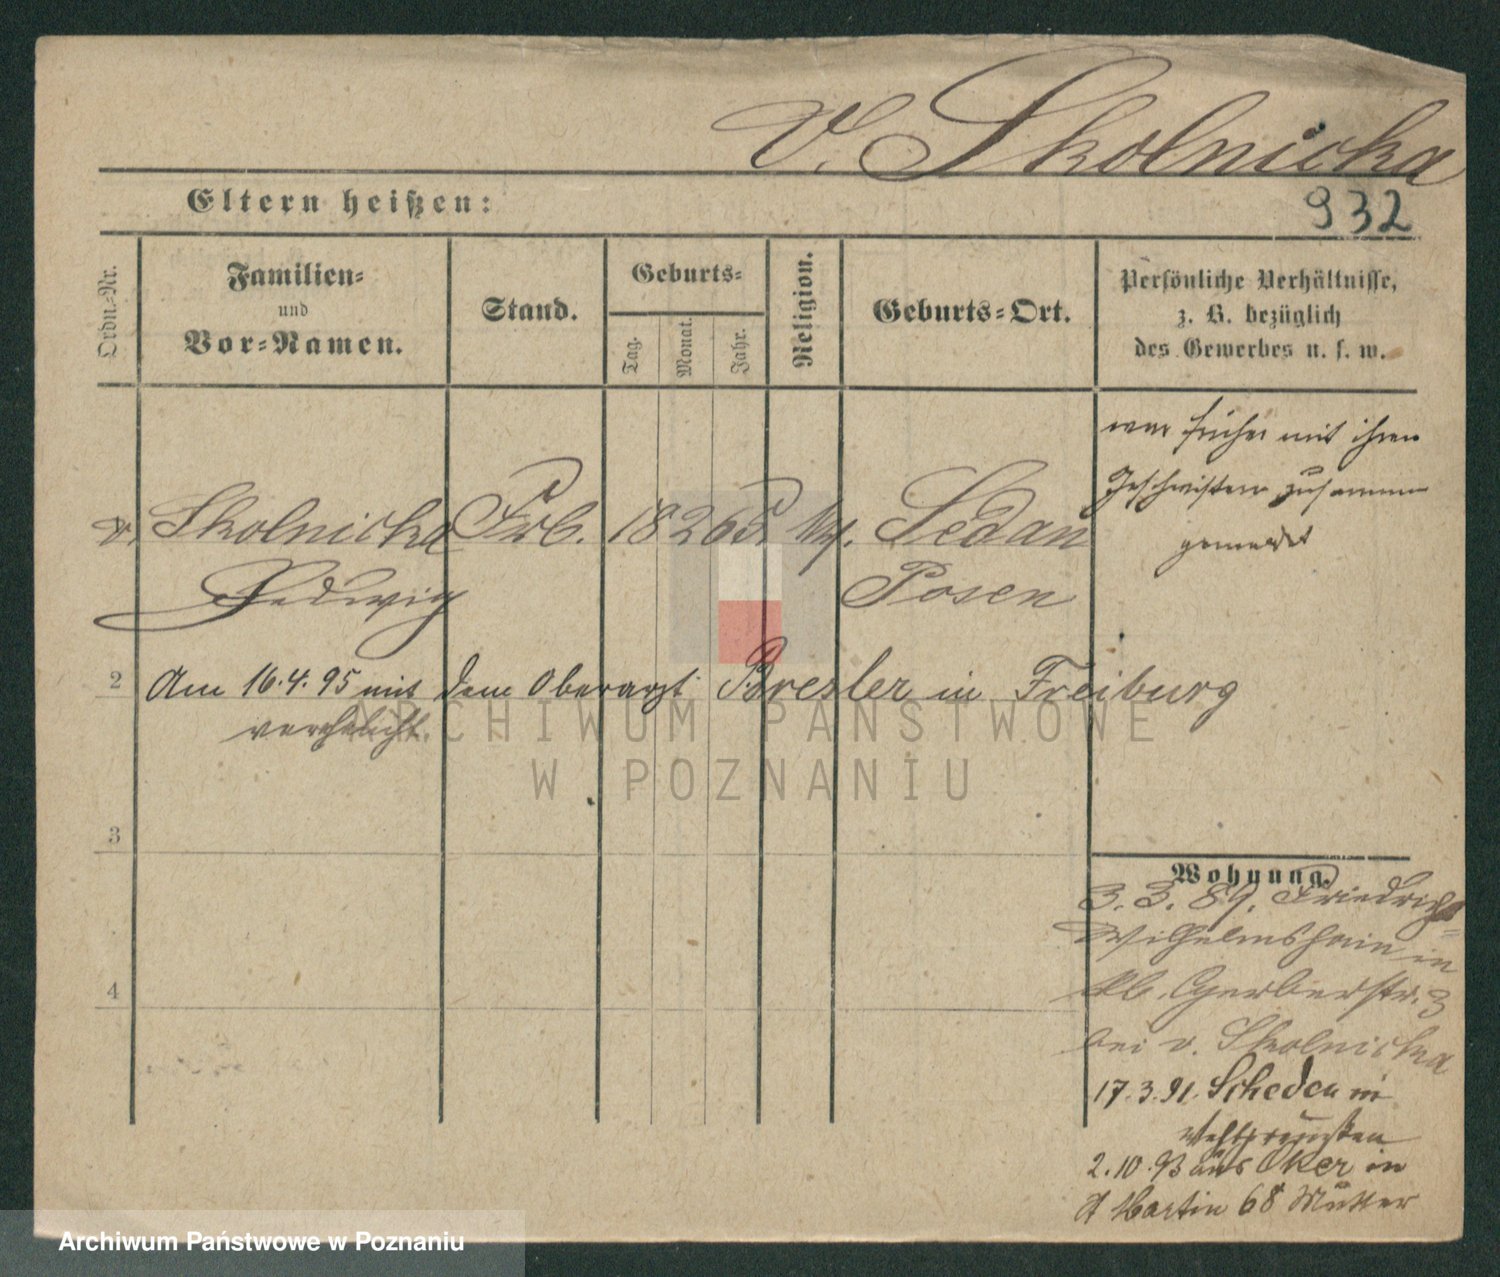 V. Skolnicka
932
Eltern heißen:
Ordn.-Nr.
Familien-
und
Vor-Namen.
Stand.
Geburts-
Tag.
Monat.
Jahr.
Religion.
Geburts-Ort.
Persönliche Verhältnisse,
z. B. bezüglich
des Gewerbes u. s. w.
war früher mit ihren
Geschwistern zusammen
gemeldet
v. Skolnicka
Hedwig
Frl.
18 2 65.
Sedan
Posen
2 Am 16.4.95 mit dem Oberarzt Bresler in Freiburg
verehelicht.
3
4
Wohnung.
3. 3. 89. Friedrichs-
Wilhelmshain in
kl. Gerberstr. 3
bei v. Skolnicka
17.3.91. Scheden in
Westpreußen
2.10.93 aus Oker in
St Martin 68 Mutter
ARCHIWUM PAŃSTWOWE
W POZNANIU
Archiwum Państwowe w Poznaniu